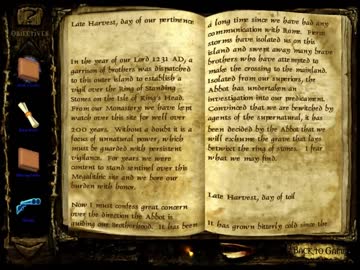 OBJECTIVES
Late Harvest, day of our pertinence
In the year of our Lord 1231 AD, a
garrison of brothers was dispatched
to this outer island to establish a
vigil over the Ring of Standing
Stones on the Isle of King's Head.
From our Monastery we have kept
watch over this site for well over
200 years. Without a doubt it is a
focus of unnatural power, which
must be guarded with persistent
vigilance. For years we were
content to stand sentinel over this
Megalithic site and we bore our
burden with honor.
Now I must confess great concern
over the direction the Abbot is
guiding our Brotherhood. It has been
a long time since we have had any
communication with Rome. Fierce
storms have isolated us on this
island and swept away many brave
brothers who have attempted to
make the crossing to the mainland.
Isolated from our superiors, the
Abbot has undertaken an
investigation into our predicament.
Convinced that we are bewitched by
agents of the supernatural, it has
been decided by the Abbot that we
will exhume the grave that lays
betwixt the ring of stones. I fear
what we may find.
Late Harvest, day of toil
It has grown bitterly cold since the
BACK TO GAME